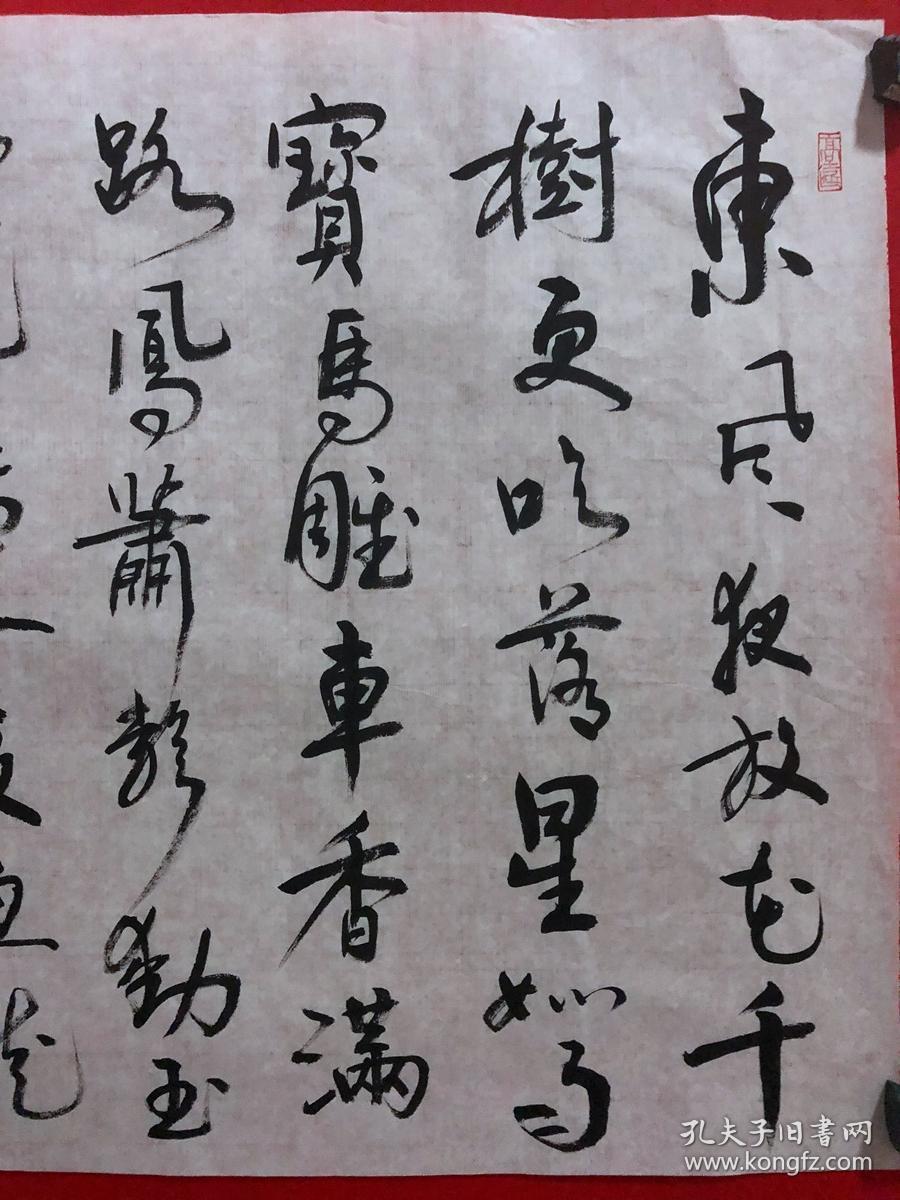 東風夜放花千
樹更吹落星如雨
寶馬雕車香滿
路鳳蕭聲動玉
孔夫子旧書网
www.kongfz.com